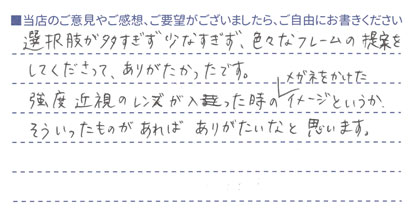 ■当店のご意見やご感想、ご要望がございましたら、ご自由にお書きください
選択肢が多すぎず少なすぎず、色々なフレームの提案を
してくださって、ありがたかったです。
メガネをかけた
強度近視のレンズが入った時のイメージというか
そういったものがあれば ありがたいなと 思います。